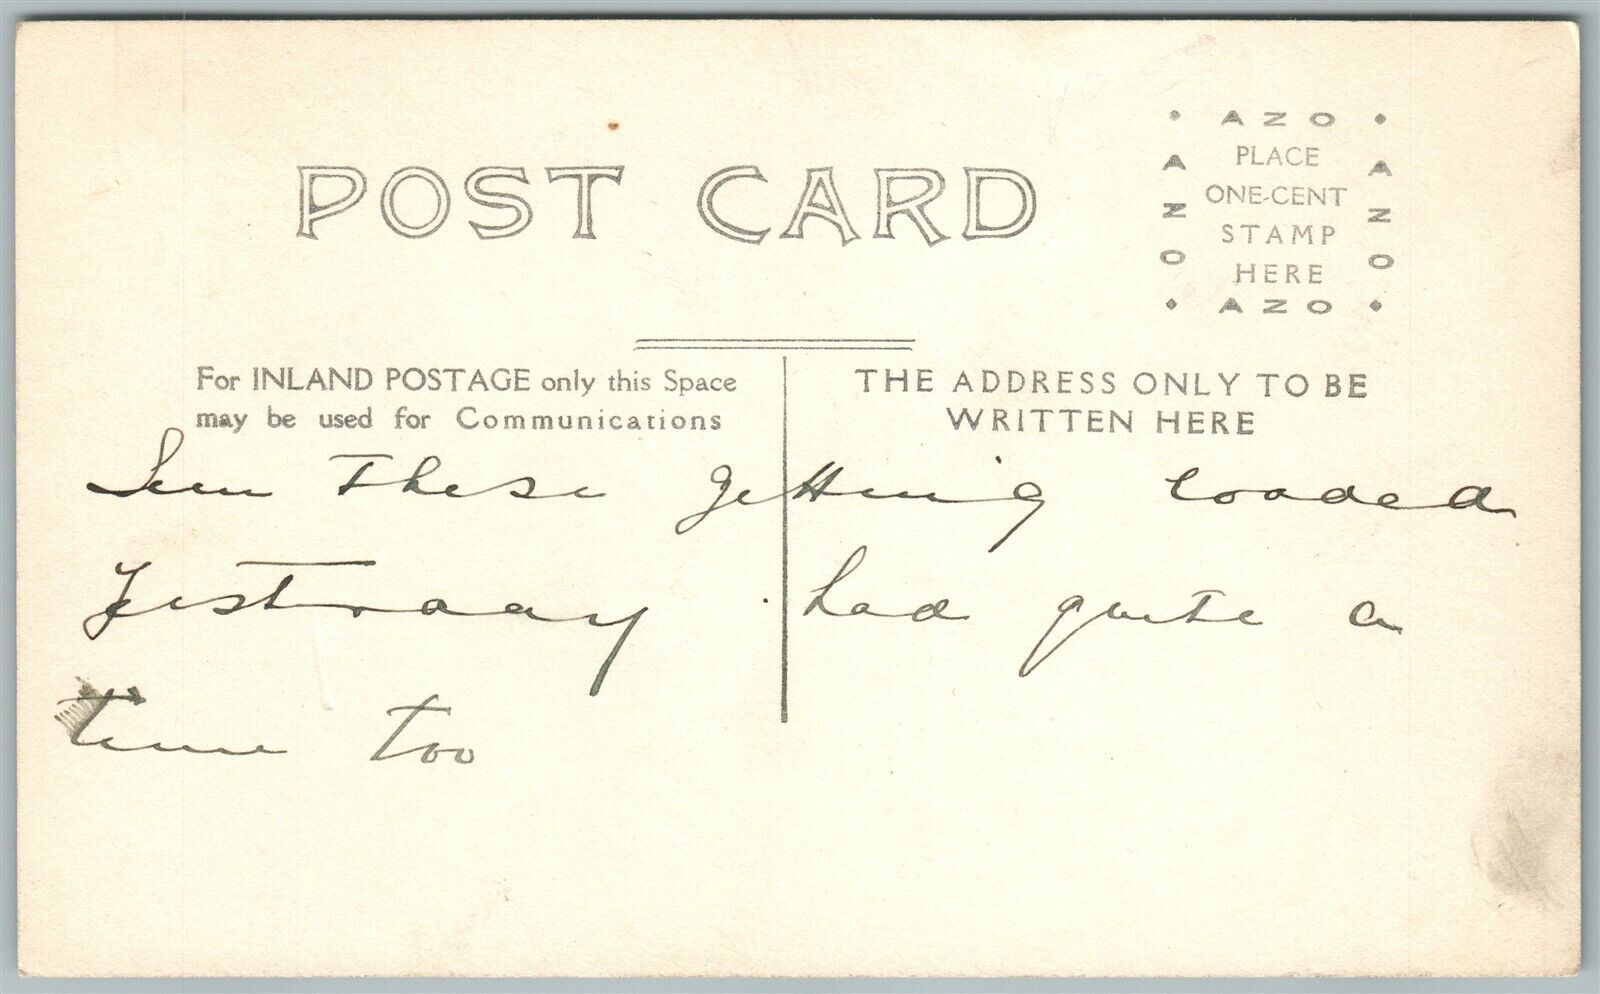 POST CARD
AZO
AZO
AZO
AZO
PLACE
ONE-CENT
STAMP
HERE
For INLAND POSTAGE only this Space
may be used for Communications
THE ADDRESS ONLY TO BE
WRITTEN HERE
Seen These getting loaded
Yesterday. had quite a
time too